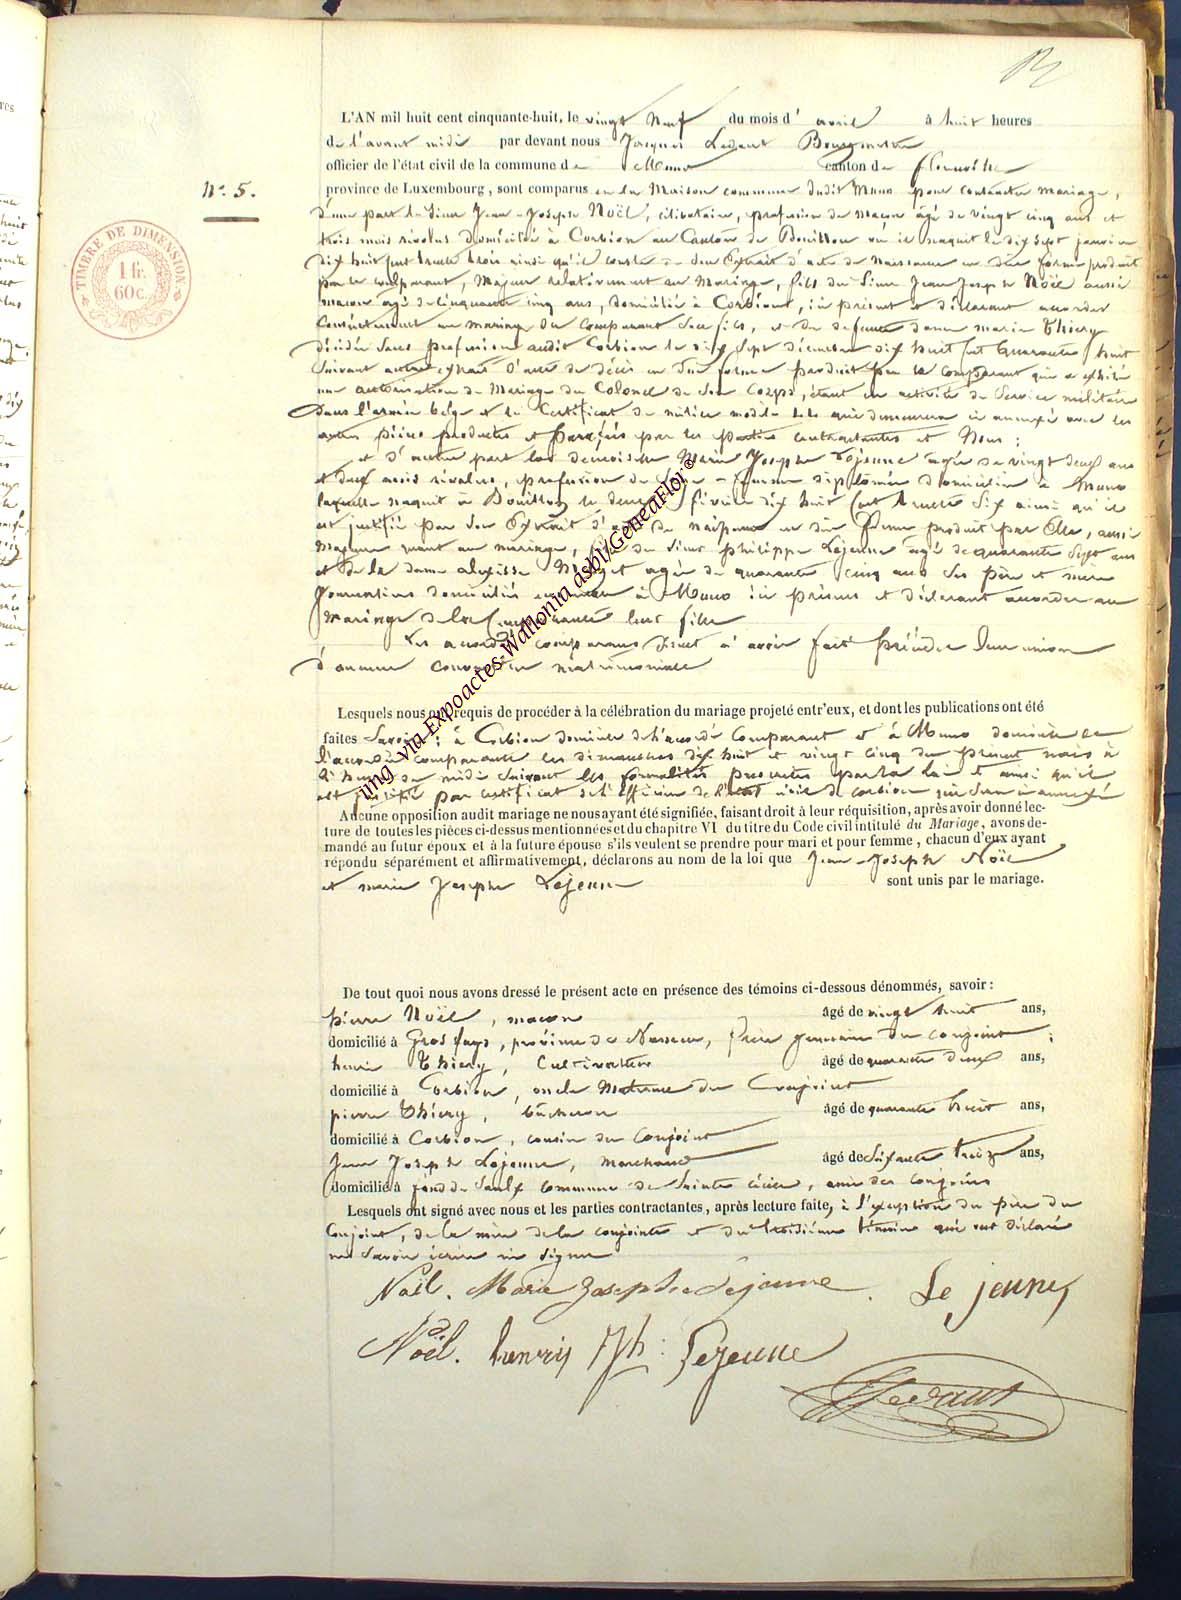 N° 5.
TIMBRE DE DIMENSION
1 fr.
60 c.
L'AN mil huit cent cinquante-huit, le vingt Neuf du mois d'avril à huit heures
de l'avant midi par devant nous Jacques Ledant Bourgmestre
officier de l'état civil de la commune de Muno canton de florenville
province de Luxembourg, sont comparus en la Maison commune dudit Muno pour contracter mariage,
d'une part le Sieur Jean-Joseph Noël, célibataire, profession de maçon âgé de vingt cinq ans et
trois mois révolus domicilié à Corbion au Canton de Bouillon où il naquit le dix sept janvier
dix huit cent trente trois ainsi qu'il conste de son Extrait d'acte de Naissance en due forme produit
par le comparant, Majeur relativement au Mariage, fils du Sieur Jean Joseph Noël aussi
maçon agé de cinquante cinq ans, domicilié à Corbion, ici présent et déclarant accorder
Consentement au mariage du comparant son fils, et de defunte dame marie Thiery
décédée sans profession audit Corbion le dix sept décembre dix huit cent quarante huit
Suivant autre extrait d'acte de décès en due forme produit par le comparant qui a exhibé
une autorisation de Mariage du Colonel de Son Corps, étant en activité de Service militaire
dans l'armée belge et le Certificat de milice modèle qui demeurera ci annexé avec les
autres pièces produites et paraphées par les Parties contractantes et Nous ;
et d'autre part la demoiselle Marie Joseph Lejeune agée de vingt deux ans
et deux mois révolus, profession de Sage-femme diplômée domiciliée à Muno
laquelle naquit à Bouillon le février dix huit cent trente Six ainsi qu'il
est justifié par Son Extrait d'acte de naissance en due forme produit par Elle, aussi
Majeure quant au mariage, fille du Sieur Philippe Lejeune agé de quarante Sept ans
et de la dame agée de quarante cinq ans Ses père et mère
domiciliés à Muno ici présens et déclarant accorder au
Mariage de la Comparante leur fille
Les accordés comparans disent à avoir fait précéder leur union
d'aucune convention matrimoniale
Lesquels nous ont requis de procéder à la célébration du mariage projeté entr'eux, et dont les publications ont été
faites Savoir : à Corbion domicile de l'accordé Comparant et à Muno domicile de
l'accordée comparante les dimanches dix huit et vingt cinq du présent mois à
l'heure de midi Suivant les formalités prescrites par la loi et ainsi qu'il
est justifié par certificat de l'officier de l'état civil de corbion ci annexé
Aucune opposition audit mariage ne nous ayant été signifiée, faisant droit à leur réquisition, après avoir donné lec-
ture de toutes les pièces ci-dessus mentionnées et du chapitre VI du titre du Code civil intitulé du Mariage, avons de-
mandé au futur époux et à la future épouse s'ils veulent se prendre pour mari et pour femme, chacun d'eux ayant
répondu séparément et affirmativement, déclarons au nom de la loi que Jean-Joseph Noël
et marie Joseph Lejeune sont unis par le mariage.
De tout quoi nous avons dressé le présent acte en présence des témoins ci-dessous dénommés, savoir :
pierre Noël, maçon âgé de vingt huit ans,
domicilié à Gros fays, province de Namur, frère germain du conjoint ;
henri Thiery, Cultivateur âgé de quarante deux ans,
domicilié à Corbion, oncle Maternel du Conjoint
pierre Thiery, bûcheron âgé de quarante huit ans,
domicilié à Corbion, cousin du Conjoint
Jean Joseph Lejeune, marchand âgé de Soixante treize ans,
domicilié à fond de Saulx commune de Sainte cécile, ami des conjoins
Lesquels ont signé avec nous et les parties contractantes, après lecture faite, à l'exception du père du
Conjoint, de la mère de la conjointe et du troisième témoin qui ont déclaré
ne Savoir écrire ni Signer
Noël. Marie Josephe Lejeune. Le jeune
Noël. henry Th: Lejeune
JLedant
img via Expoactes-Wallonia asbl/GeneaFloj®